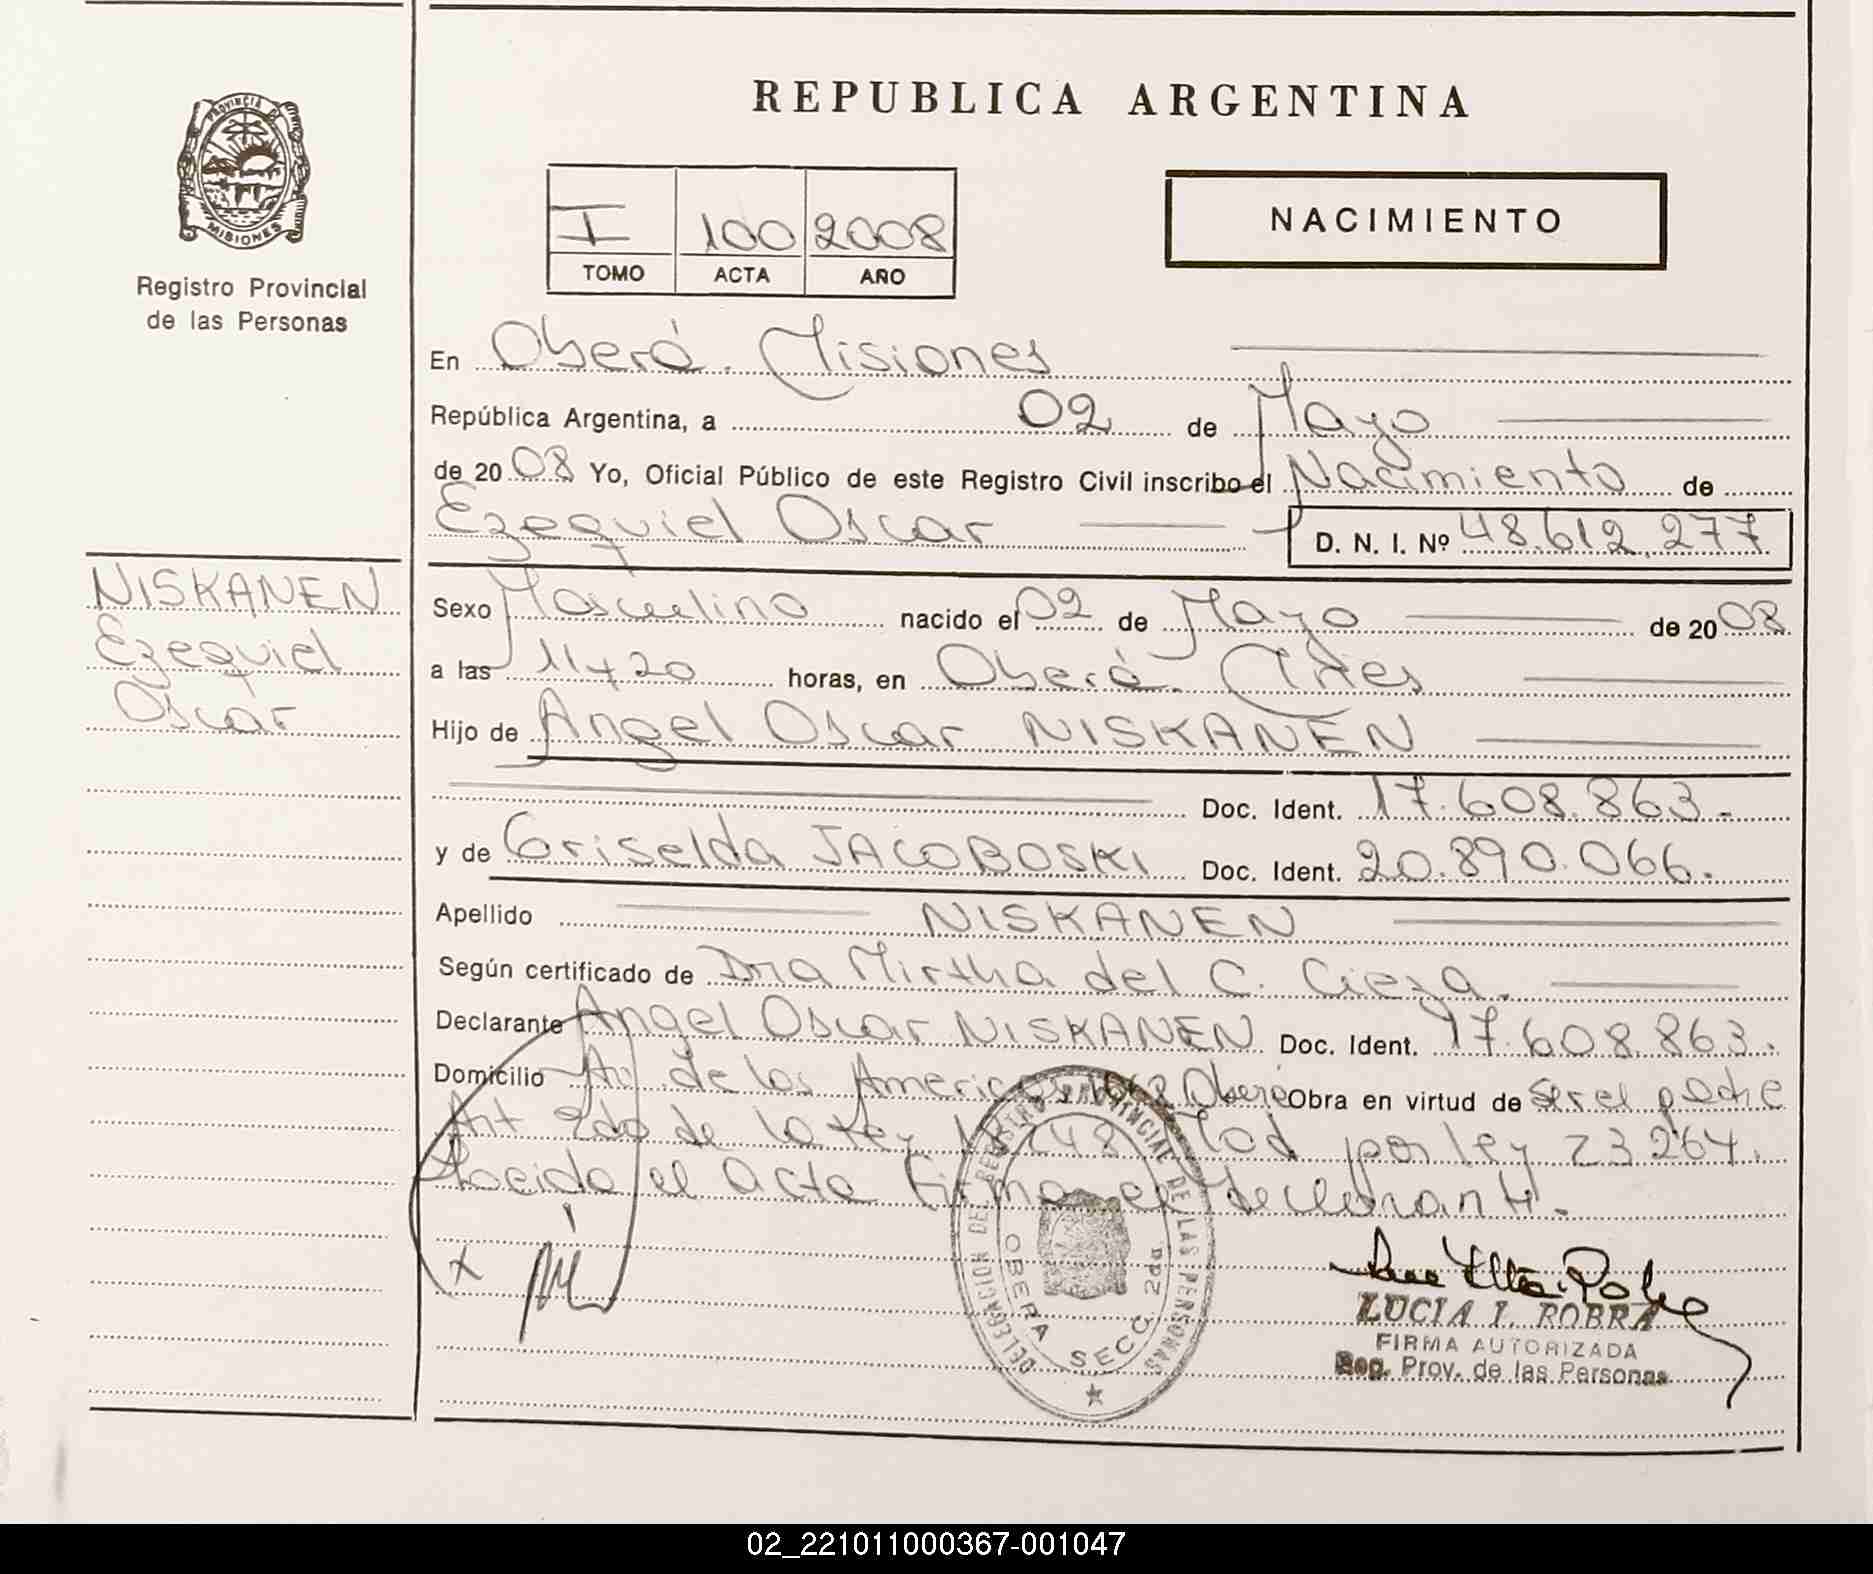 PROVINCIA DE
MISIONES
Registro Provincial
de las Personas
NISKANEN
Ezequiel
Oscar
REPUBLICA ARGENTINA
I 100 2008
TOMO ACTA AÑO
NACIMIENTO
En Oberá. Misiones
República Argentina, a 02 de Mayo
de 2008 Yo, Oficial Público de este Registro Civil inscribo el Nacimiento de
Ezequiel Oscar D. N. I. Nº 48.612.277
Sexo Masculino nacido el 02 de Mayo de 2008
a las 11 y 20 horas, en Oberá. Mnes
Hijo de Angel Oscar NISKANEN
Doc. Ident. 17.608.863.
y de Griselda JACOBOSKI Doc. Ident. 20.890.066.
Apellido NISKANEN
Según certificado de Dra Mirtha del C. Cieza.
Declarante Angel Oscar NISKANEN Doc. Ident. 17.608.863.
Domicilio Av. de las Americas Oberá Obra en virtud de ser el padre
Art 2do de la ley Mod por ley 23264.
el Acta Firma el declarante.
x
DELEGACION DEL REGISTRO PROVINCIAL DE LAS PERSONAS
OBERA SECC. 2da
LUCIA I. ROBRA
FIRMA AUTORIZADA
Reg. Prov. de las Personas
02_221011000367-001047